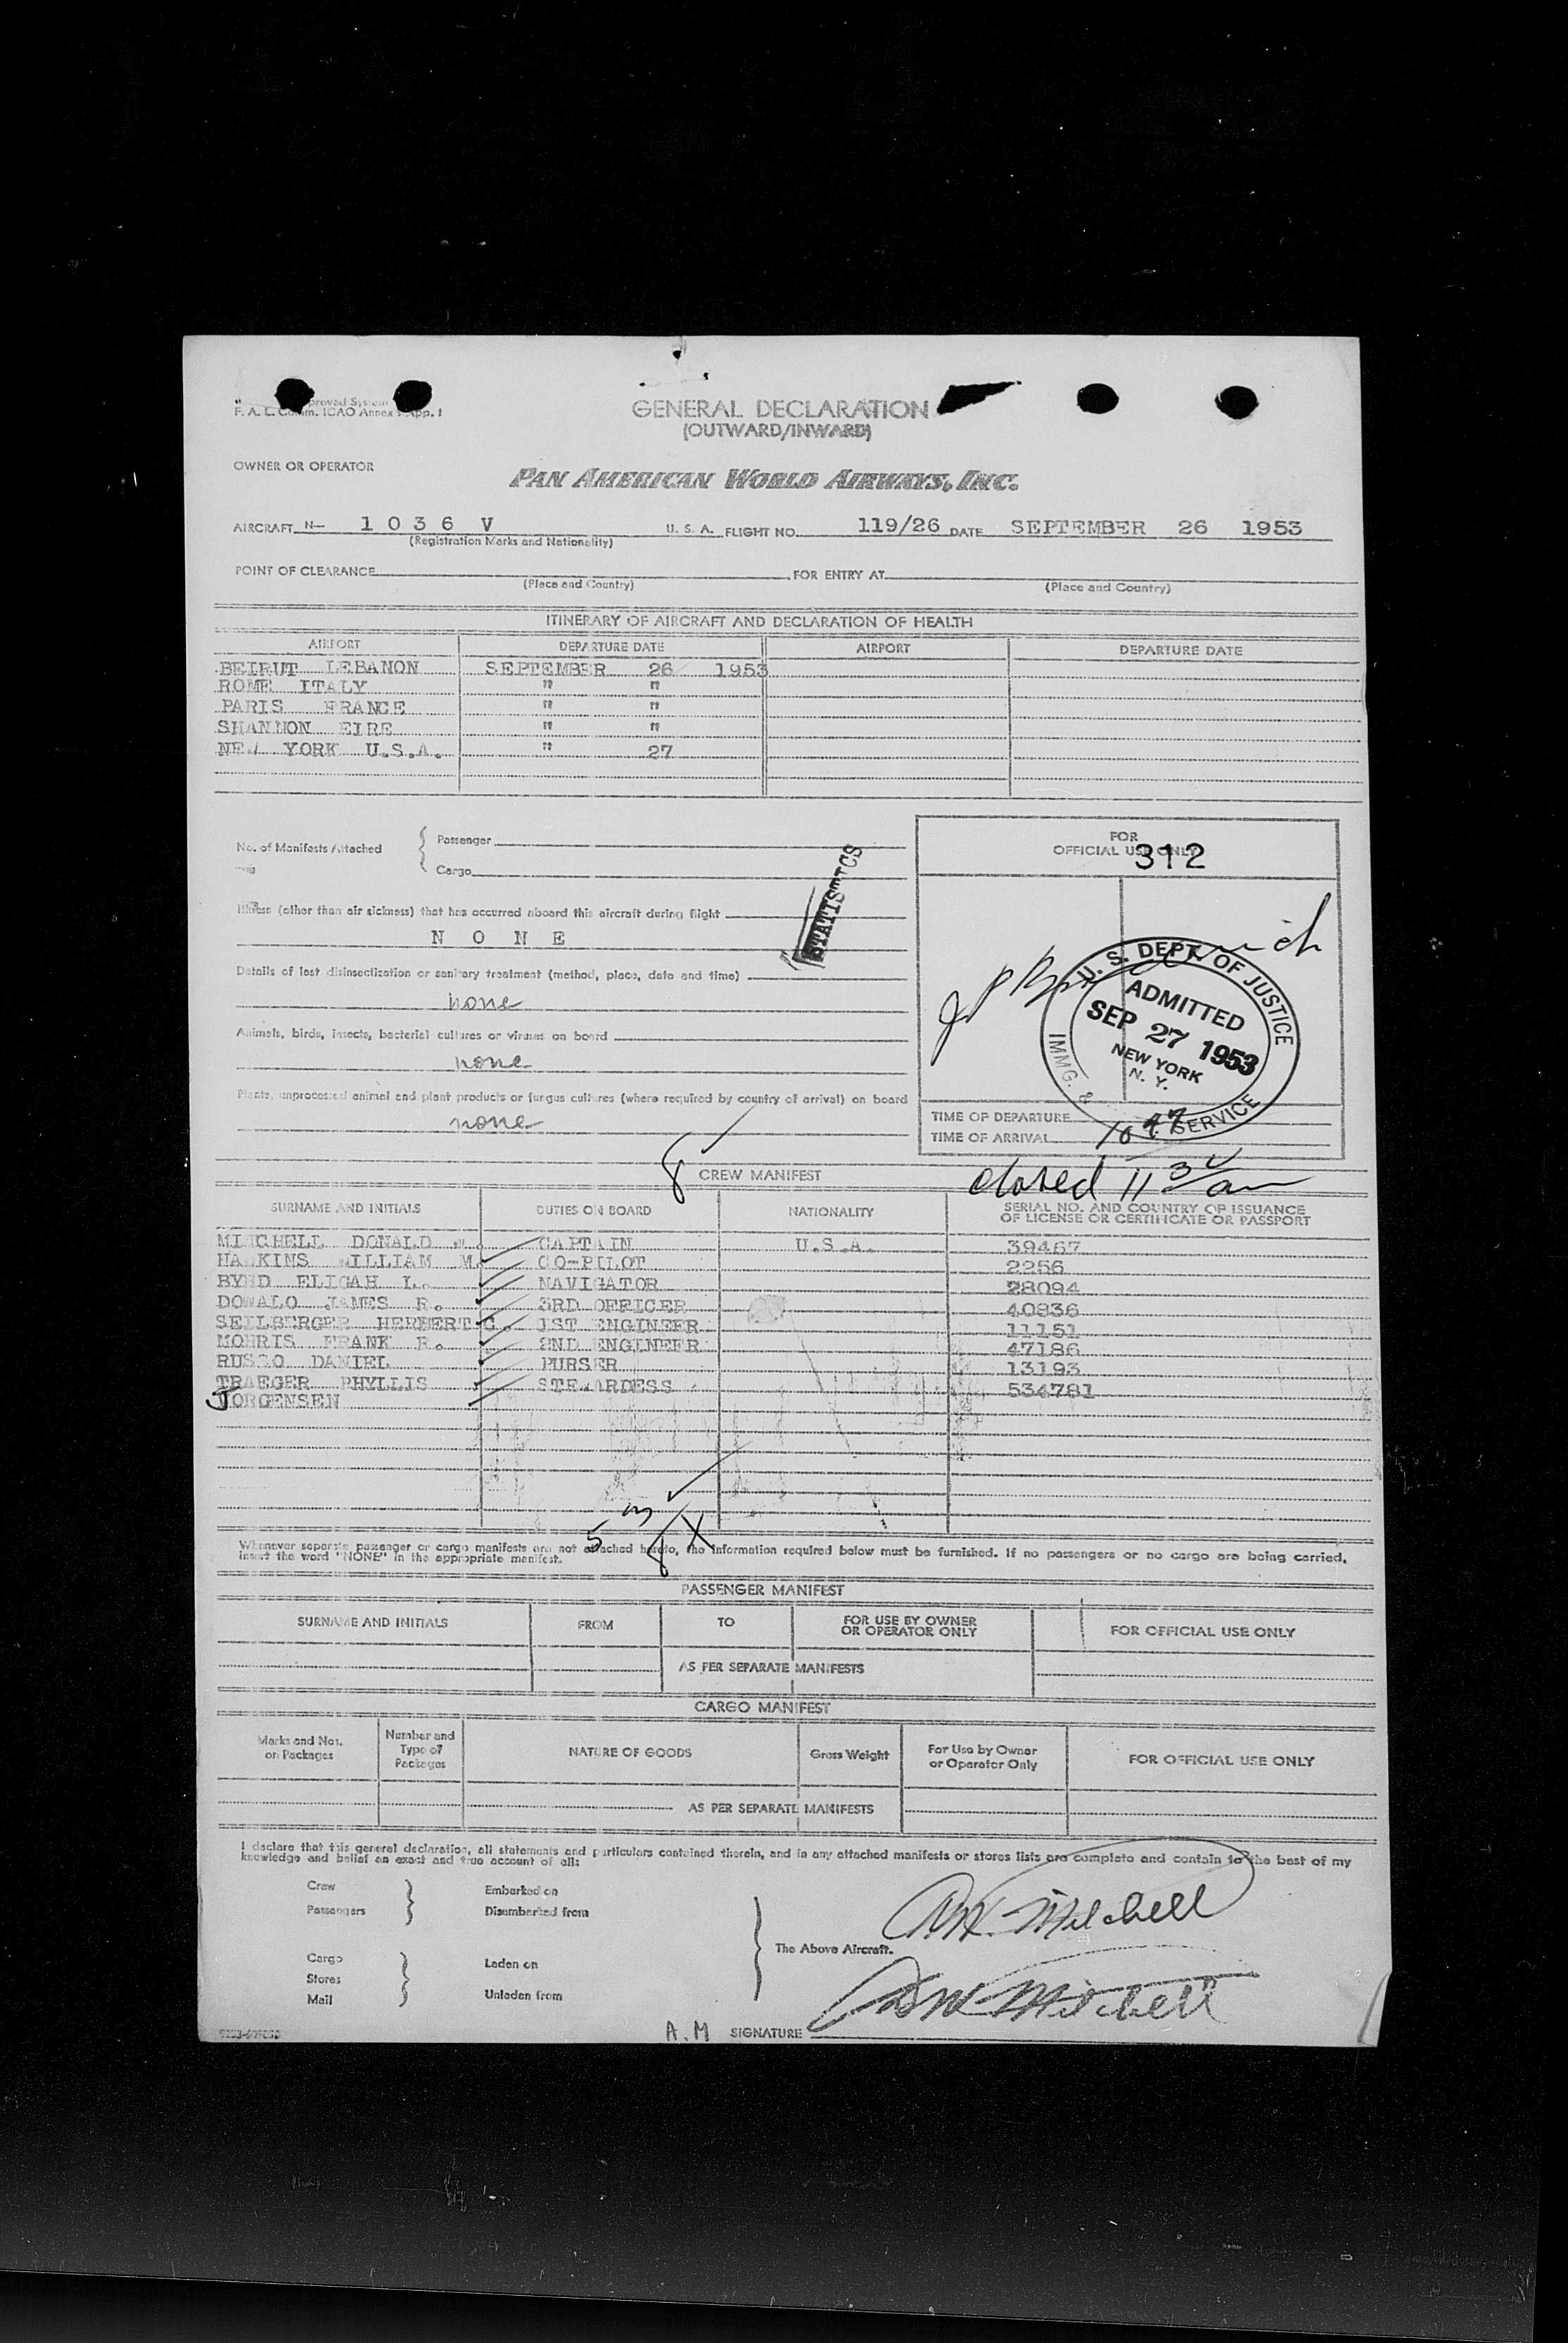 proved System
F. A. L. Comm. ICAO Annex App. 1
GENERAL DECLARATION
(OUTWARD/INWARD)
OWNER OR OPERATOR
PAN AMERICAN WORLD AIRWAYS, INC.
AIRCRAFT N- 1 0 3 6 V U. S. A. FLIGHT NO. 119/26 DATE SEPTEMBER 26 1953
(Registration Marks and Nationality)
POINT OF CLEARANCE FOR ENTRY AT
(Place and Country) (Place and Country)
ITINERARY OF AIRCRAFT AND DECLARATION OF HEALTH
AIRPORT DEPARTURE DATE AIRPORT DEPARTURE DATE
BEIRUT LEBANON SEPTEMBER 26 1953
ROME ITALY " "
PARIS FRANCE " "
SHANNON EIRE " "
NEW YORK U.S.A. " 27
No. of Manifests Attached
Passenger
Cargo
STATISTICS
FOR
OFFICIAL USE ONLY
312
Illness (other than air sickness) that has occurred aboard this aircraft during flight
N O N E
Details of last disinsectization or sanitary treatment (method, place, date and time)
none
Animals, birds, insects, bacterial cultures or viruses on board
none
Plants, unprocessed animal and plant products or fungus cultures (where required by country of arrival) on board
none
U. S. DEPT. OF JUSTICE
ADMITTED
SEP 27 1953
NEW YORK
N. Y.
IMMG. & SERVICE
TIME OF DEPARTURE
TIME OF ARRIVAL 10 47
8
closed 11 30 am
CREW MANIFEST
SURNAME AND INITIALS DUTIES ON BOARD NATIONALITY SERIAL NO. AND COUNTRY OF ISSUANCE
OF LICENSE OR CERTIFICATE OR PASSPORT
MITCHELL DONALD W. CAPTAIN U.S.A. 39467
HAWKINS WILLIAM M. CO-PILOT 2256
BYRD ELIGAH L. NAVIGATOR 28094
DONALO JAMES R. 3RD OFFICER 40836
SEILBERGER HERBERT C. 1ST ENGINEER 11151
MORRIS FRANK R. 2ND ENGINEER 47186
RUSSO DANIEL PURSER 13193
TRAEGER PHYLLIS STEWARDESS 534781
JORGENSEN
5 m
8 X
Whenever separate passenger or cargo manifests are not attached hereto, the information required below must be furnished. If no passengers or no cargo are being carried,
insert the word "NONE" in the appropriate manifest.
PASSENGER MANIFEST
SURNAME AND INITIALS FROM TO FOR USE BY OWNER
OR OPERATOR ONLY FOR OFFICIAL USE ONLY
AS PER SEPARATE MANIFESTS
CARGO MANIFEST
Marks and Nos.
on Packages
Number and
Type of
Packages
NATURE OF GOODS
Gross Weight
For Use by Owner
or Operator Only
FOR OFFICIAL USE ONLY
AS PER SEPARATE MANIFESTS
I declare that this general declaration, all statements and particulars contained therein, and in any attached manifests or stores lists are complete and contain to the best of my
knowledge and belief an exact and true account of all:
Crew Embarked on
Passengers Disembarked from
DW. Mitchell
The Above Aircraft.
Cargo Laden on
Stores
Mail Unladen from
A.M SIGNATURE DW Mitchell